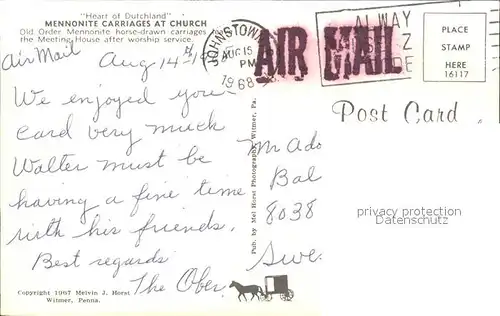 "Heart of Dutchland"
MENNONITE CARRIAGES AT CHURCH
Old Order Mennonite horse-drawn carriages
the Meeting House after worship service.
Air Mail
Aug 14th
We enjoyed you
card very much
Walter must be
having a fine time
with his friends.
Best regards
The Ober
Copyright 1967 Melvin J. Horst
Witmer, Penna.
JOHNSTOWN
AUG 15
PM
1968
AIR MAIL
ALWAY
Z
DE
PLACE
STAMP
HERE
16117
Post Card
Pub. by Mel Horst Photography, Witmer, Pa.
Mr Ado
Bal
8038
Swe
privacy protection
VARDON